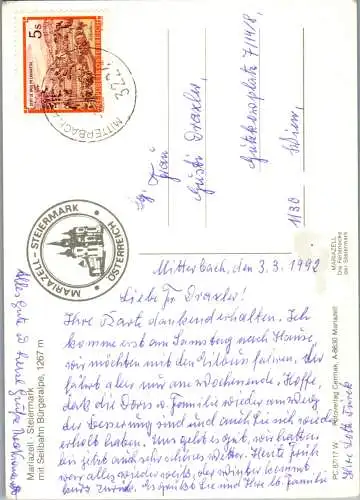 5s
REPUBLIK ÖSTERREICH
MITTERBACH
3224
Frau
Gusti Draxler
Gutzkowplatz 7/14/8,
1130 Wien,
MARIAZELL - STEIERMARK
ÖSTERREICH
MARIAZELL
Die Ferienecke
der Steiermark
Mitterbach, den 3.3.1992
Liebe Fr. Draxler!
Ihre Karte dankend erhalten. Ich
komme erst am Samstag nach Hause,
wir möchten mit den Eilbus fahren. Der
fährt aber nur am Wochenende. Hoffe,
daß die Doris u. Familie wieder am Weg
der Besserung sind und auch Sie sich wieder
erholt haben. Uns geht es gut, wir hatten
bis jetzt auch sehr schönes Wetter. Heute früh
war alles wieder weiß, der Winter kommt
zurück. Es grüßt Sie und Ihre lb. Familie
Ihre
Alles Gute u. herzl. Grüße
Mariazell - Steiermark
mit Seilbahn Bürgeralpe, 1267 m
PC 6717 W
A-8630 Mariazell